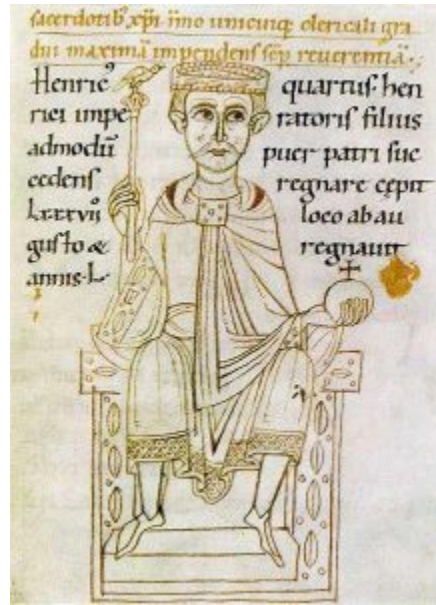 sacerdotib; xp̄i īmo unicuiq; clericali gra
dui maximā impendens sēp reuerentiā.
Henricꝰ quartus hen
rici impe ratoris filius
admodū puer patri suc
cedens regnare cępit
lxxxvii loco ab au
gusto & regnauit
annis.L.